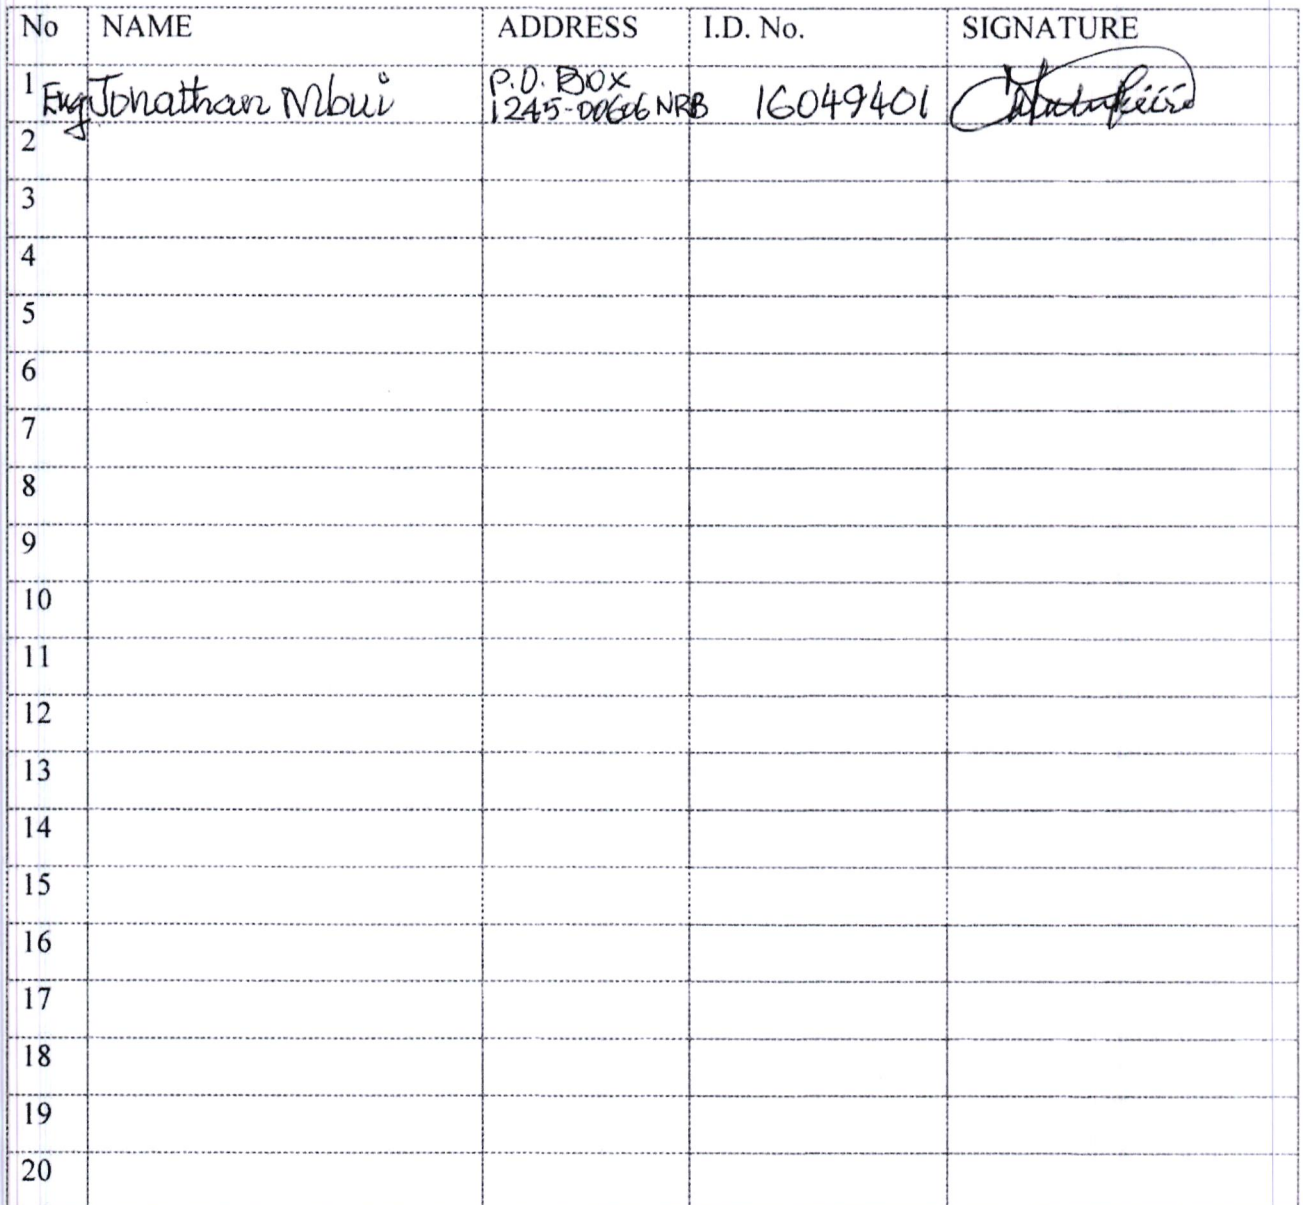 No NAME ADDRESS I.D. No. SIGNATURE
1 Eng Jonathan Mbui P.O. BOX 16049401
1245-00606 NRB
2
3
4
5
6
7
8
9
10
11
12
13
14
15
16
17
18
19
20